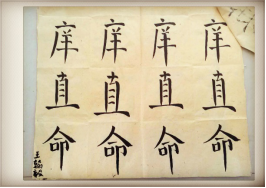 庠 庠 庠 庠
直 直 直 直
命 命 命 命